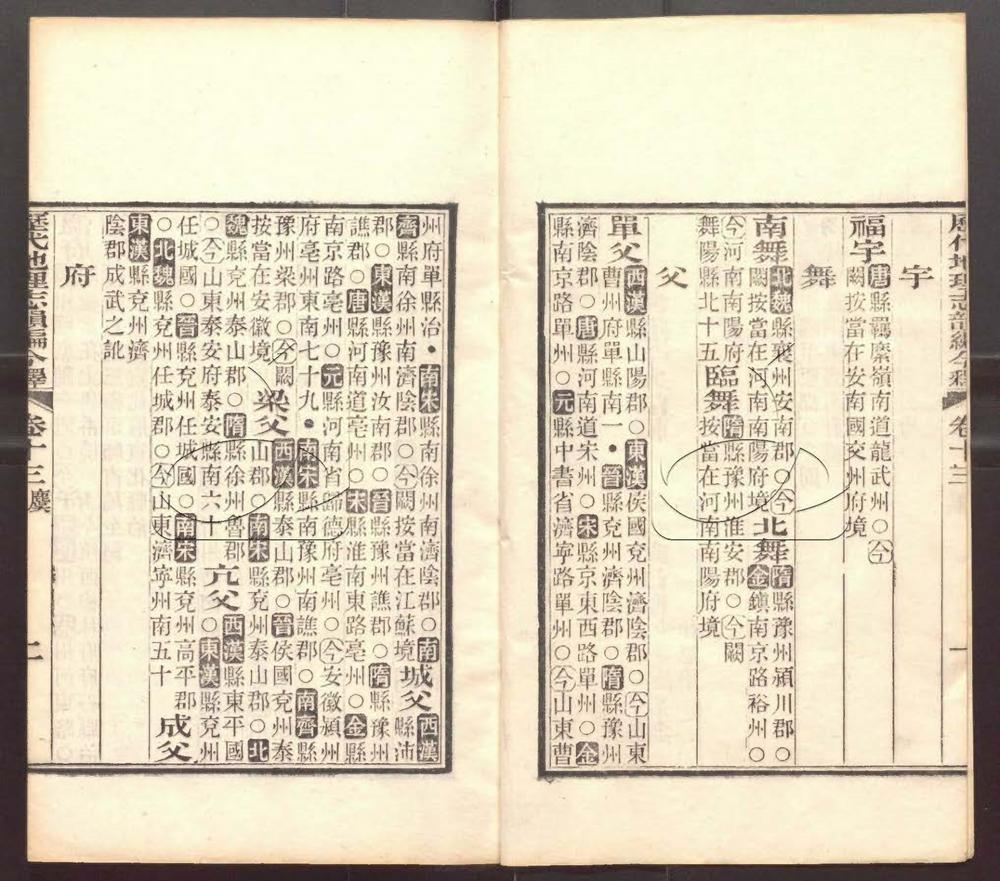 歷代地理志韻編今釋 卷十三 一
宇
福宇唐縣羈縻嶺南道龍武州○今
闕按當在安南國交州府境
舞
南舞北魏縣襄州安南郡○今
闕按當在河南南陽府境北舞隋縣豫州潁川郡○
今河南南陽府隋縣豫州淮安郡○今闕
舞陽縣北十五臨舞按當在河南南陽府境
金鎮南京路裕州○
父
單父西漢縣山陽郡○東漢侯國兗州濟陰郡○今山東
曹州府單縣南一·晉縣兗州濟陰郡○隋縣豫州
濟陰郡○唐縣河南道宋州○宋縣京東西路單州○金
縣南京路單州○元縣中書省濟寧路單州○今山東曹
州府單縣治·南宋縣南徐州南濟陰郡○南
齊縣南徐州南濟陰郡○今闕按當在江蘇境城父西漢
縣沛
郡○東漢縣豫州汝南郡○晉縣豫州譙郡○隋縣豫州
譙郡○唐縣河南道亳州○宋縣淮南東路亳州○金縣
南京路亳州○元縣河南省歸德府亳州○今安徽潁州
府亳州東南七十九·南宋縣南豫州南譙郡○南齊縣
豫州梁郡○今闕
按當在安徽境梁父西漢縣泰山郡○晉侯國兗州泰
山郡○南宋縣兗州泰山郡○北
魏縣兗州泰山郡○隋縣徐州魯郡
○今山東泰安府泰安縣南六十亢父西漢縣東平國
○東漢縣兗州
任城國○晉縣兗州任城國○南宋縣兗州高平郡
○北魏縣兗州任城郡○今山東濟寧州南五十成父
東漢縣兗州濟
陰郡成武之訛
府
歷代地理志韻編今釋 卷十三麌 二